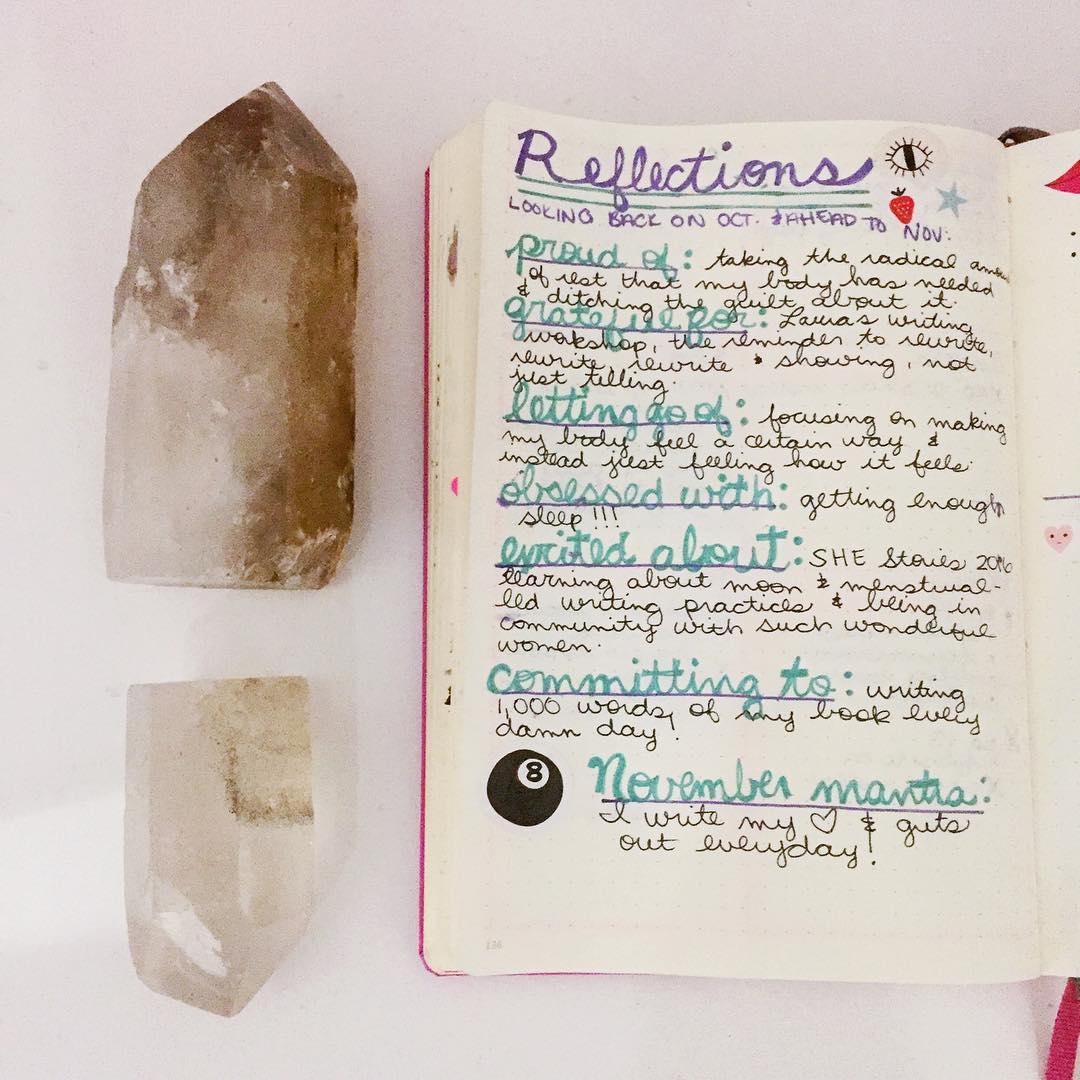 Reflections
LOOKING BACK ON OCT. & AHEAD TO NOV:
proud of: taking the radical amount
of rest that my body has needed
& ditching the guilt about it.
grateful for: Laura's writing
workshop, the reminder to rewrite,
rewrite, rewrite & showing, not
just telling.
letting go of: focusing on making
my body feel a certain way &
instead just feeling how it feels.
obsessed with: getting enough
sleep!!!
excited about: SHE Stories 2016
learning about moon & menstrual-
led writing practices & being in
community with such wonderful
women.
committing to: writing
1,000 words of my book every
damn day!
8
November mantra:
I write my ♡ & guts
out everyday!
136